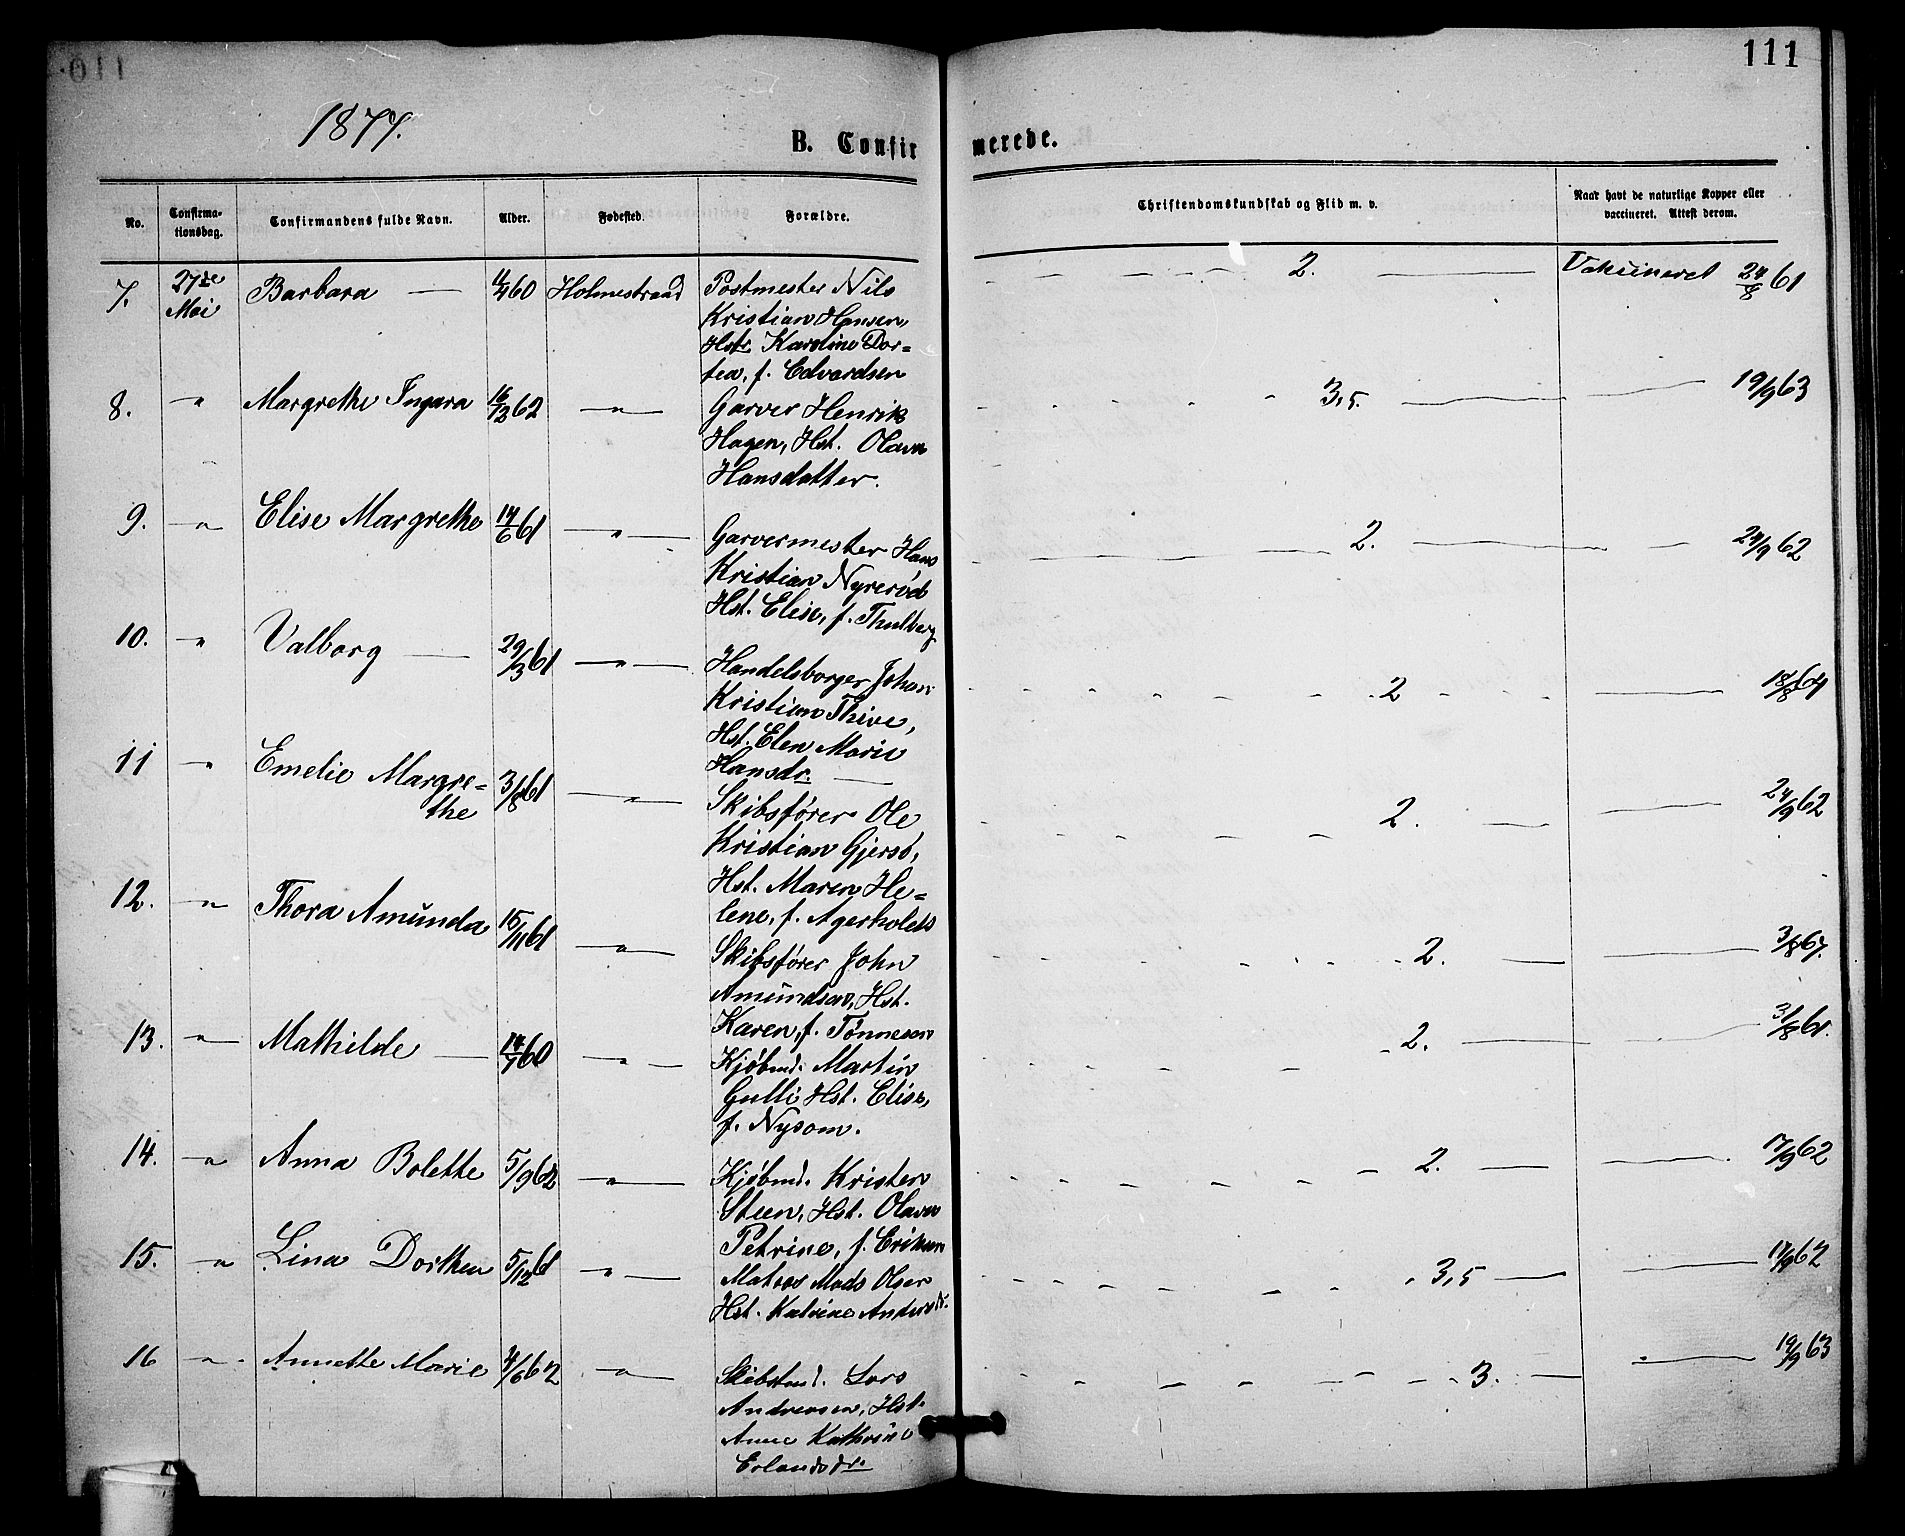 111
1877.
B. Confirmerede.
No. Confirmationsdag. Confirmandens fulde Navn. Alder. Fødested. Forældre. Christendomskundskab og Flid m. v. Naar havt de naturlige Kopper eller vaccineret. Attest derom.
7. 27de Mai Barbara — 60 Holmestrand Postmester Nils — 2. — Vakcineret 24/8 61
Kristian Hansen,
Hstr. Karoline Dor=
tea, f. Edvardsen
8. " Margrethe Ingara 16/12 62 — " — Garver Henrik 3,5. — 19/9 63
Hagen, Hst. Olava
Hansdatter.
9. " Elise Margrethe 14/6 61 — " — Garvermester Hans 2. — 24/9 62
Kristian Nyrerød
Hst. Elise, f. Thulberg
10. " Valborg — 29/3 61 — " — Handelsborger Johan 2 — 18/8 64
Kristian Thive,
Hst. Elen Marie
Hansdr. —
11 " Emelie Margre= 3/8 61 — " — Skibsfører Ole 2. — 24/9 62
the
Kristian Gjersø,
Hst. Maren He=
lene, f. Agerholdt
12. " Thora Amunda 15/11 61 — " — Skibsfører John 2. — 3/8 67.
Amundsen, Hst.
Karen, f. Tønnesen
13. " Mathilde — 60 — " — Kjøbmd. Martin 2. — 3/8 61.
Gulli Hst. Elise,
f. Nysom.
14. " Anna Bolette 5/9 62 — " — Kjøbmd. Kristen 2. — 17/9 62
Steen, Hst. Olava
Petrine, f. Eriksen
15. " Lina Dorthea 5/12 61 " — Matros Mads Olsen 3,5 — 17/9 62
Hst. Anders
16 " Annette Marie 4/6 62 — " — Skibstmd. Lars 3. — 19/9 63
Andreasen, Hst.
Anne Kathrine
Erlandsdr.